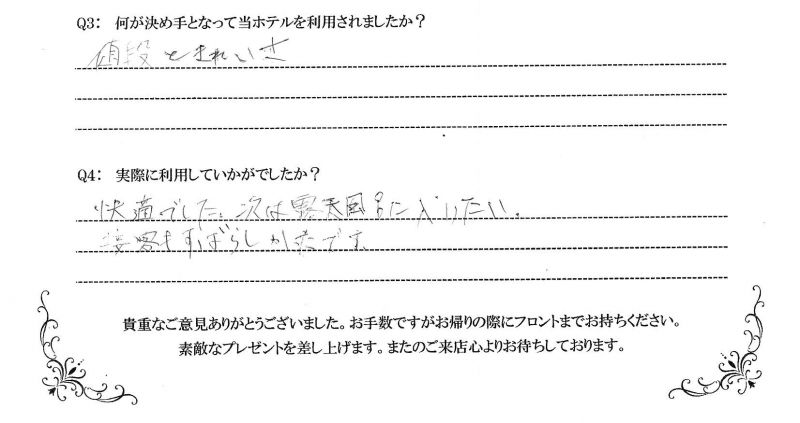 Q3: 何が決め手となって当ホテルを利用されましたか？
値段ときれいさ
Q4: 実際に利用していかがでしたか？
快適でした。次は露天風呂に入りたい。
接客もすばらしかったです。
貴重なご意見ありがとうございました。お手数ですがお帰りの際にフロントまでお持ちください。
素敵なプレゼントを差し上げます。またのご来店心よりお待ちしております。